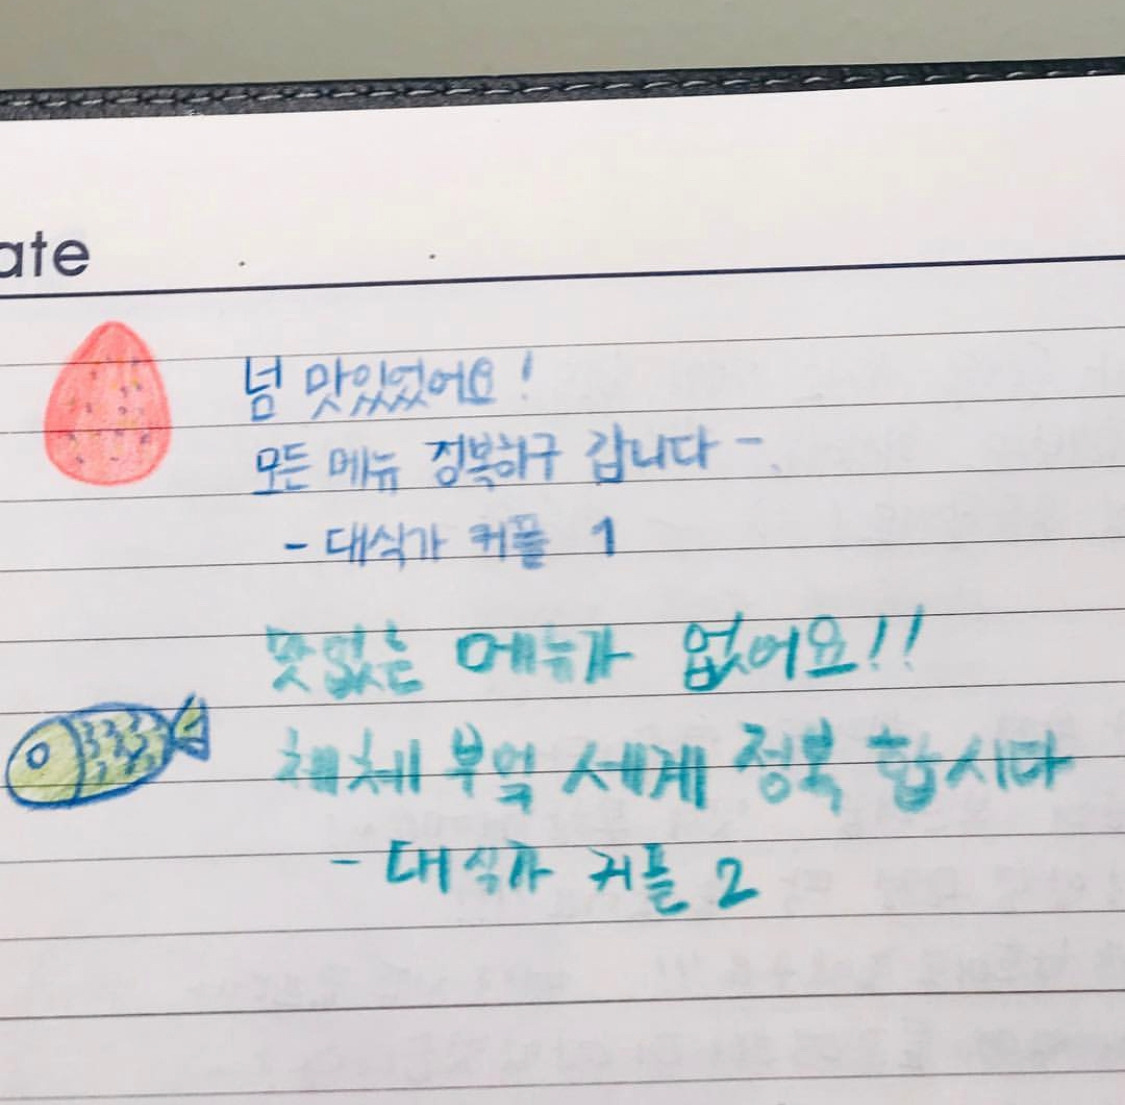 ate
넘 맛있었어요!
모든 메뉴 정복하구 갑니다-.
- 대식가 커플 1
맛없는 메뉴가 없어요!!
체체 부엌 세계 정복 합시다
- 대식가 커플 2